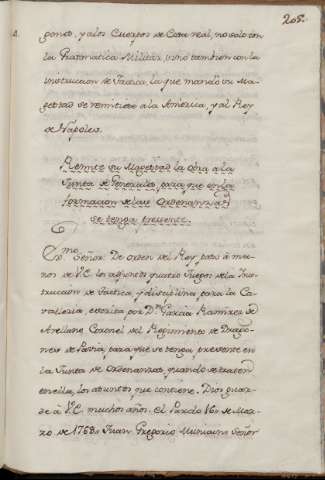 205.
goneto, y a los Cuerpos de Casa real, no solo con
la Pracmatica Militar, sino tambien con la
instruccion de Tactica, la que mandó su Ma-
gestad se remitiese a la America, y al Rey
de Napoles.
Remite su Magestad la obra a la
Junta de Generales, para que en la
formacion de las Ordenanzas
se tenga presente.
Exmo. Señor: De orden del Rey, paso á ma-
nos de V.E. los adjuntos quatro Juegos de la Ins-
truccion de Tactica, y disciplina para la Ca-
valleria, escrita por Dn. Garcia Ramirez de
Arellano Coronel del Regimiento de Drago-
nes de Pavia, para que se tenga presente en
la Junta de Ordenanzas, quando se traten
en ella, los asuntos que contiene. Dios guar-
de á V.E. muchos años. El Pardo 16 de Mar-
zo de 1768. Juan Gregorio Muniain. Señor